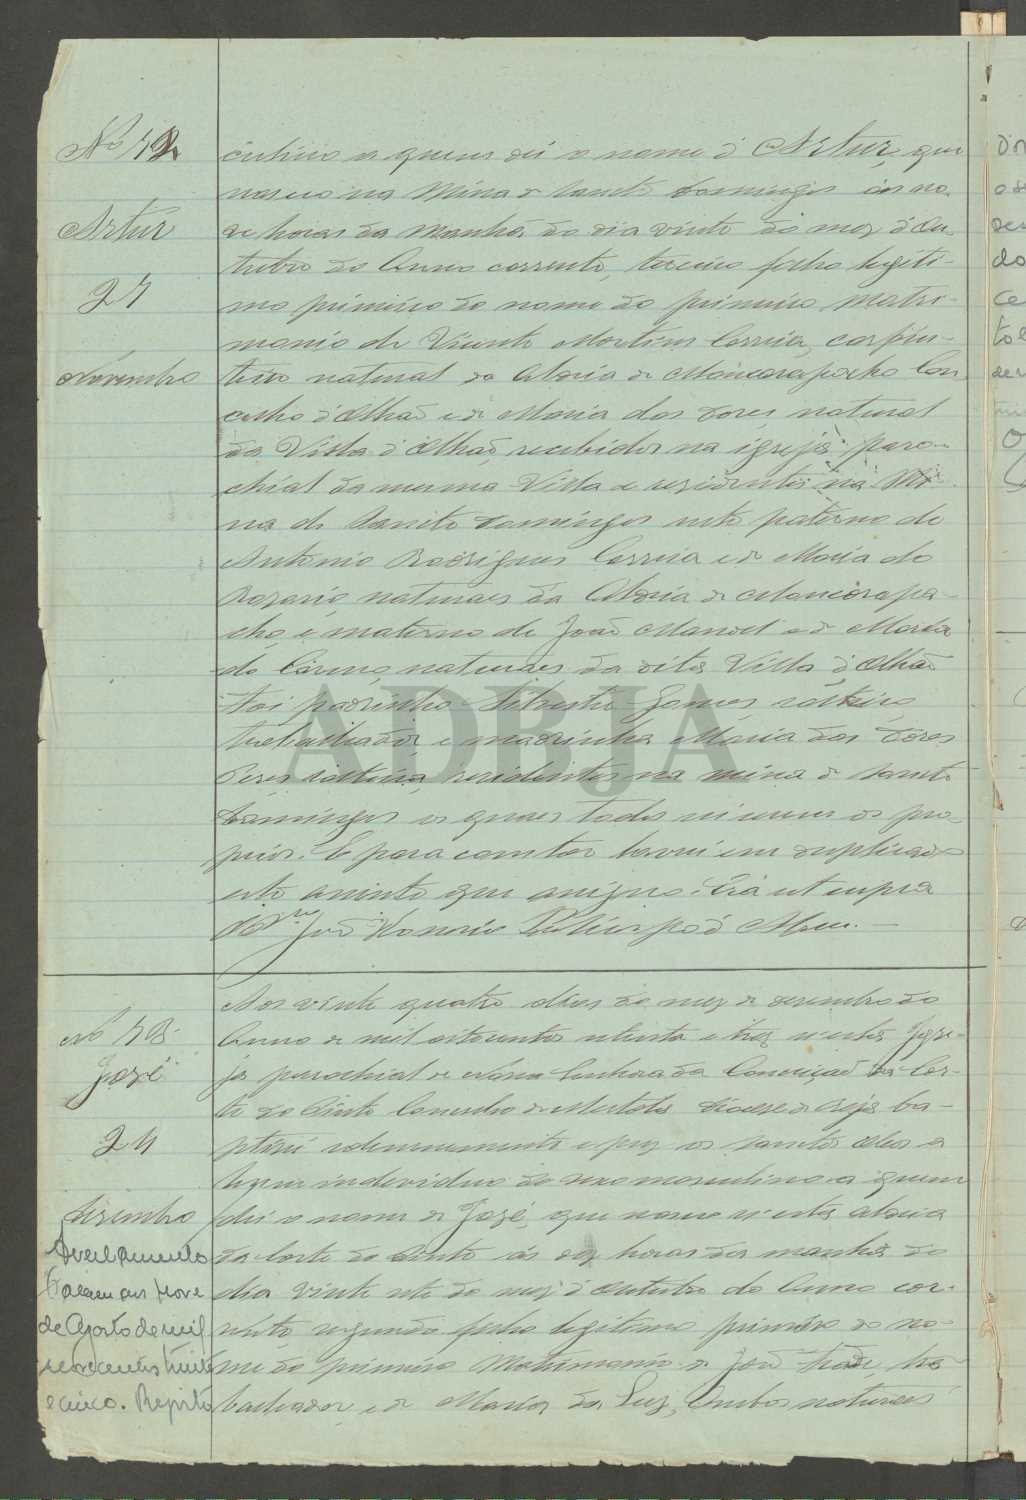 Nº 72
Artur
27
Novembro
culino a quem dei o nome d'Artur, que
nasceu na Mina de Sancto Domingos ás no-
ve horas da manhã do dia vinte do mez d'Ou-
tubro do Anno corrente, terceiro filho legiti-
mo primeiro do nome do primeiro matri-
monio de Vicente Martins Correia, carpin-
teiro natural da Aldeia de Moncarapacho Con-
celho d'Olhão e de Maria das Dores, natural
da Villa d'Olhão, recebidos na igreja paro-
chial da mesma Villa e residentes na Mi-
na de Sancto Domingos neto paterno de
Antonio Rodrigues Correia e de Maria do
Rozario, naturaes da Aldeia de Moncarapa-
cho e materno de João Manoel e de Maria
do Carmo, naturaes da dita Villa d'Olhão
Foi padrinho Silvestre Gomes, solteiro,
trabalhador e madrinha Maria das Dores
solteira, residentes na mina de Sancto
Domingos os quaes todos os pro-
prios. E para constar lavrei em duplicado
este assento que assigno. Era ut supra
João
ADBJA
Nº 73
José
24
Dezembro
Aos vinte quatro dias do mez de dezembro do
Anno de mil oitocentos oitenta e trez n'esta Igre-
ja parochial de Nossa Senhora da Conceição da Cor-
te do Pinto Concelho de Mertola Diocese de Beja ba-
ptizei solemnemente e puz os sanctos oleos a
hum individuo do sexo masculino a quem
dei o nome de José, que nasceu n'esta aldeia
da Corte do Pinto ás dez horas da manhã do
dia vinte sete do mez d'Outubro do Anno cor-
rente segundo filho legitimo primeiro do no-
me do primeiro Matrimonio de João tra-
balhador, e de Maria da Luz, Ambos naturaes
em aos nove
de Agosto de mil
novecentos trinta
e cinco. Repito